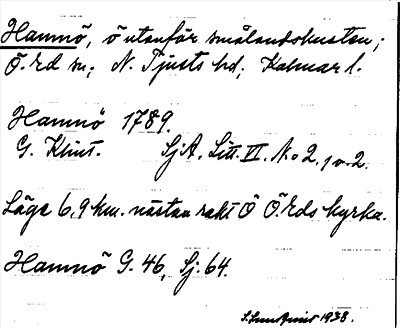 Hamnö, ö utanför smålandskusten;
Ö. Ed sn; N. Tjusts hd; Kalmar l.
Hamnö 1789.
G. Klint. SjA. Litt. VI. No 2, 1 o. 2.
Läge 6,9 km. nästan rakt Ö Ö. Eds kyrka.
Hamnö G. 46, Sj. 64.
1938.